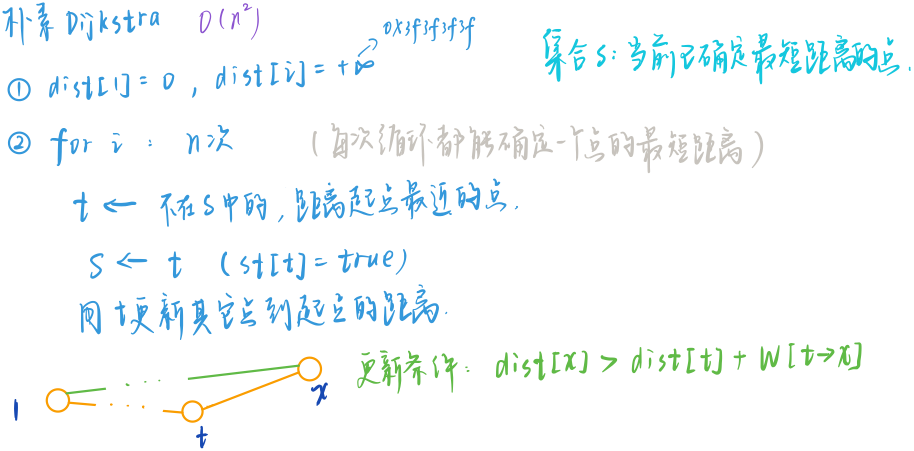 朴素Dijkstra O(n²)
0x3f3f3f3f
集合S:当前已确定最短距离的点.
① dist[1]=0, dist[i]=+∞
② for i : n次 (每次循环都能确定一个点的最短距离)
t ← 不在S中的,距离起点最近的点.
S ← t (st[t]=true)
用t更新其它点到起点的距离.
更新条件: dist[x] > dist[t] + W[t→x]
1 ... x
... t